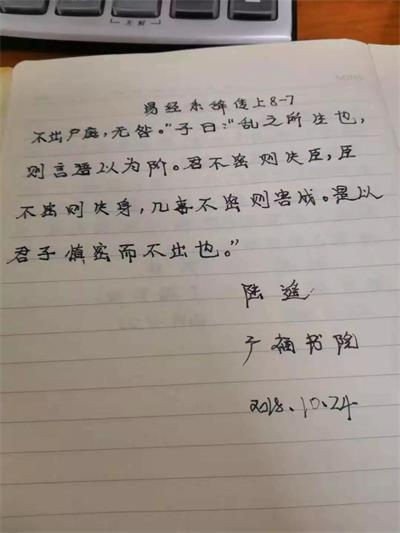 易经系辞传上8-7
不出户庭，无咎。"子曰："乱之所生也，
则言语以为阶。君不密则失臣，臣
不密则失身，几事不密则害成。是以
君子慎密而不出也。"
陆遥
广福书院
2018.10.24